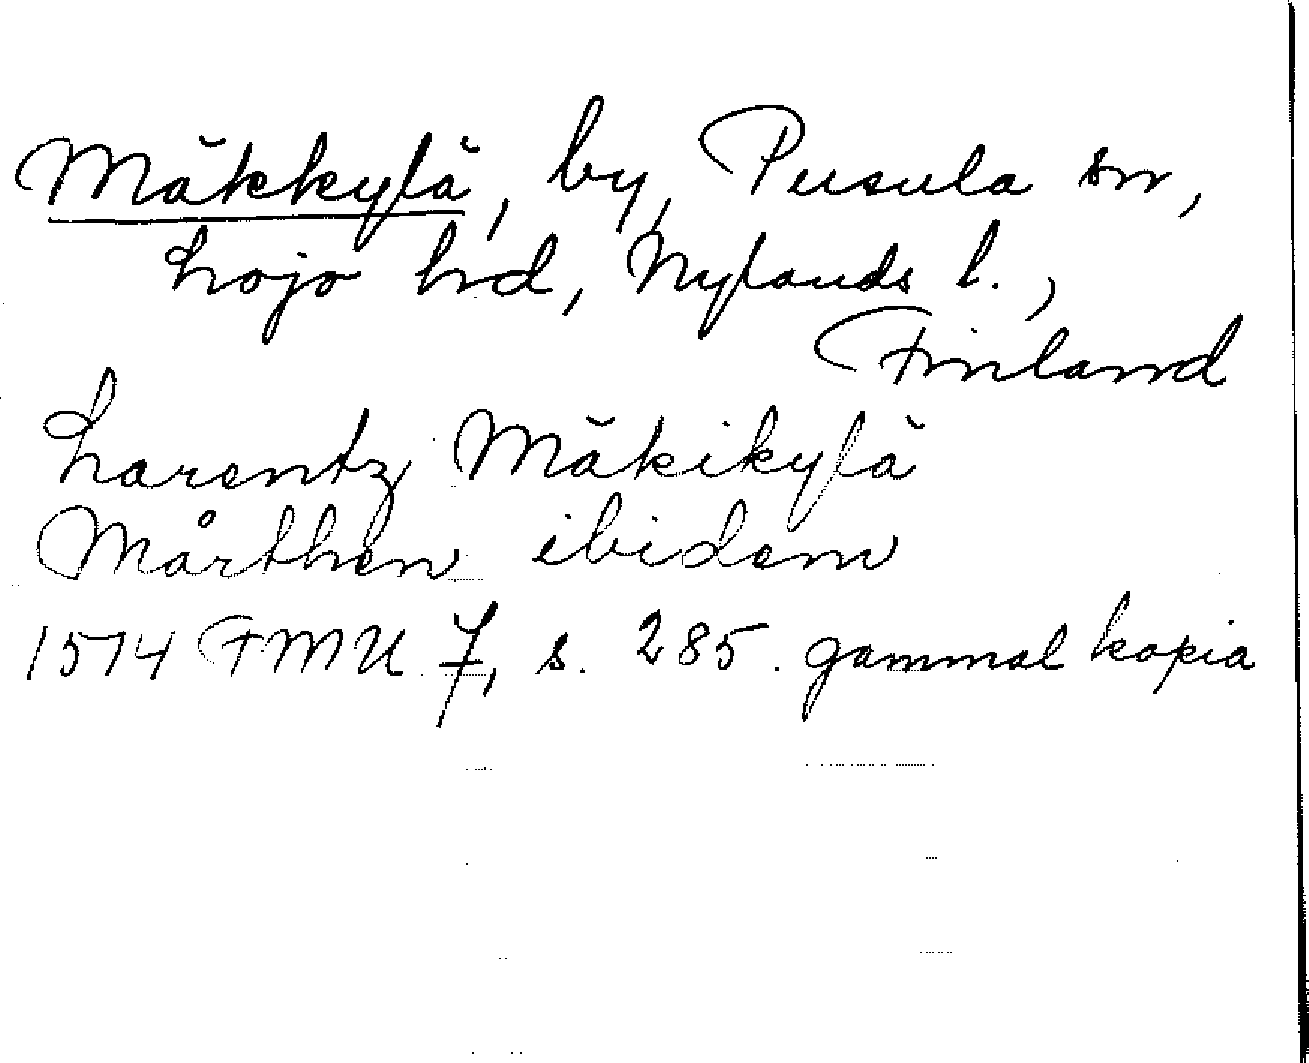 Mäkkylä, by, Pusula sn,
Lojo hd, Nylands l.,
Finland
Larentz Mäkikylä
Mårthen ibidem
1574 FMU 7, s. 285. gammal kopia